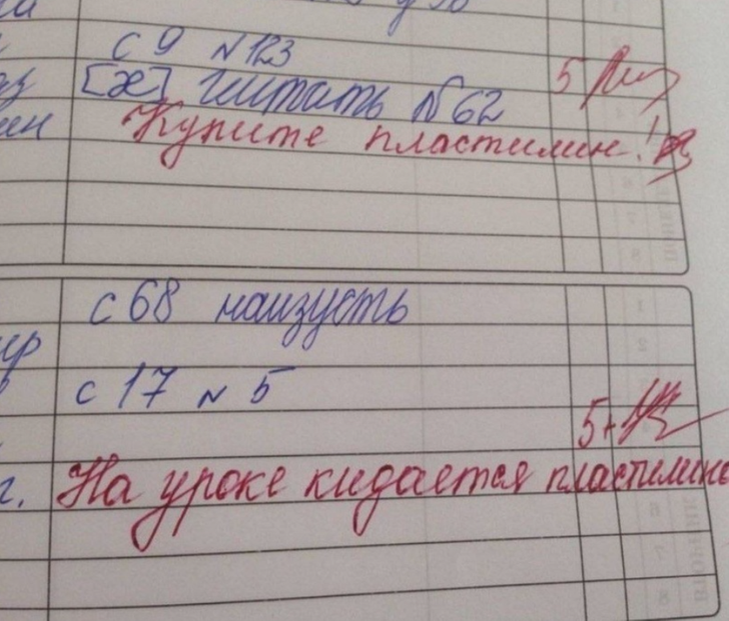 с 9 № 123
[х] читать № 62 5
Купите пластилин!
с 68 наизусть
с 17 № 5
5+
г. На уроке кидается пластилино